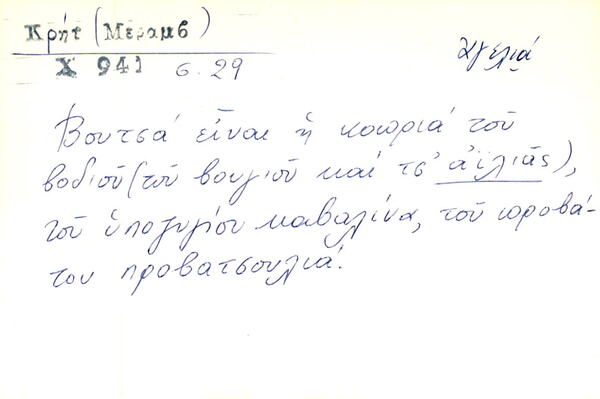 Κρήτ (Μεραμβ)
Χ 941 σ. 29
ἀγελιά
Βουτσά εἶναι ἡ κοπριά τοῦ
βοδιοῦ (τοῦ βουγιοῦ καί τσ' ἀϊλιᾶς),
τοῦ ὑποζυγίου καβαλίνα, τοῦ προβά-
του προβατσουλιά.